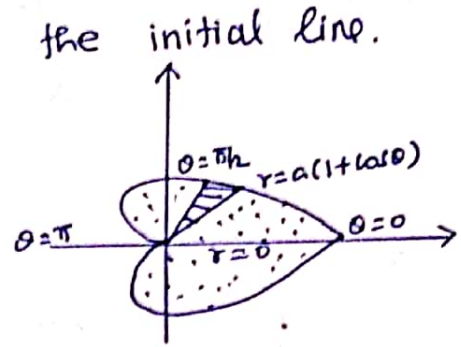 the initial line.
θ = π/2
r = a(1+cosθ)
θ = π
r = 0
θ = 0